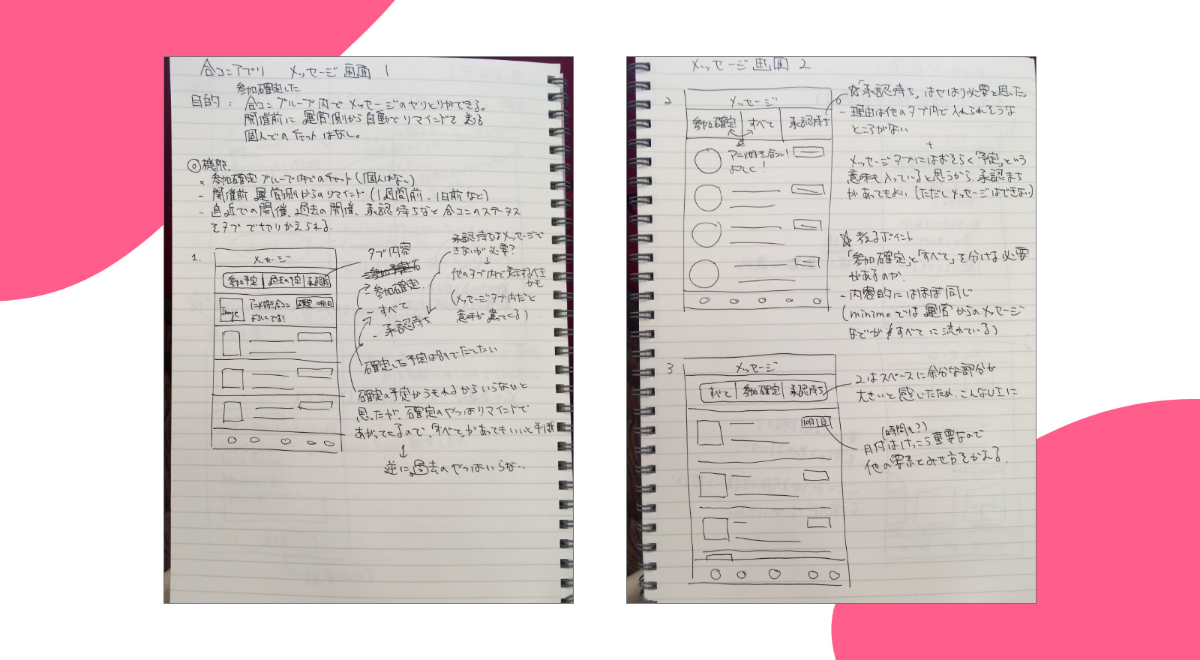 合コンアプリ メッセージ画面 1
参加確定した
目的: 合コングループ内でメッセージのやりとりができる。
開催前に運営側から自動でリマインドを送る
個人でのチャットはなし。
◎機能
- 参加確定グループ内でのチャット(個人はなし)
- 開催前 運営側からのリマインド(1週間前、1日前など)
- 直近での開催、過去の開催、承認待ちなど 合コンのステータス
をタブで切りかえられる。
1.
メッセージ
参加予定 過去の予定
Image
アニメ好き合コン
よろしくです!
タブ内容
- 参加確定
- すべて
- 承認待ち
承認待ちはメッセージで
きないが必要?
↓
他のタブ内で
かも
(メッセージタブ内だと
意味が違ってくる)
確定した予定は別でだしたい
確定の予定がうもれるからいらないと
思ったが、確定のやつはリマインドで
あがってくるので、「すべて」があってもいいと判断
↓
逆に過去のやつはいらない..
メッセージ画面 2
2
メッセージ
参加確定 すべて 承認待ち
アニメ好き合コン!
よろしく!
☆「承認待ち」はやはり必要と思った
- 理由は他のタブ内で入れられそうな
ところがない
+
メッセージタブにはおそらく「予定」という
意味も入っていると思うから、承認まち
があってもよい(ただしメッセージはできない)
☆考えるポイント
「参加確定」と「すべて」を分ける必要
があるのか
- 内容的にはほぼ同じ
(minimoでは運営からのメッセージ
などがすべてに流れている)
3
メッセージ
すべて 参加確定 承認待ち
10月1日
2はスペースに余分な部分が
大きいと感じたため、こんなUIに
(時間も?)
日付はけっこう重要なので
他の要素とみせ方をかえる.